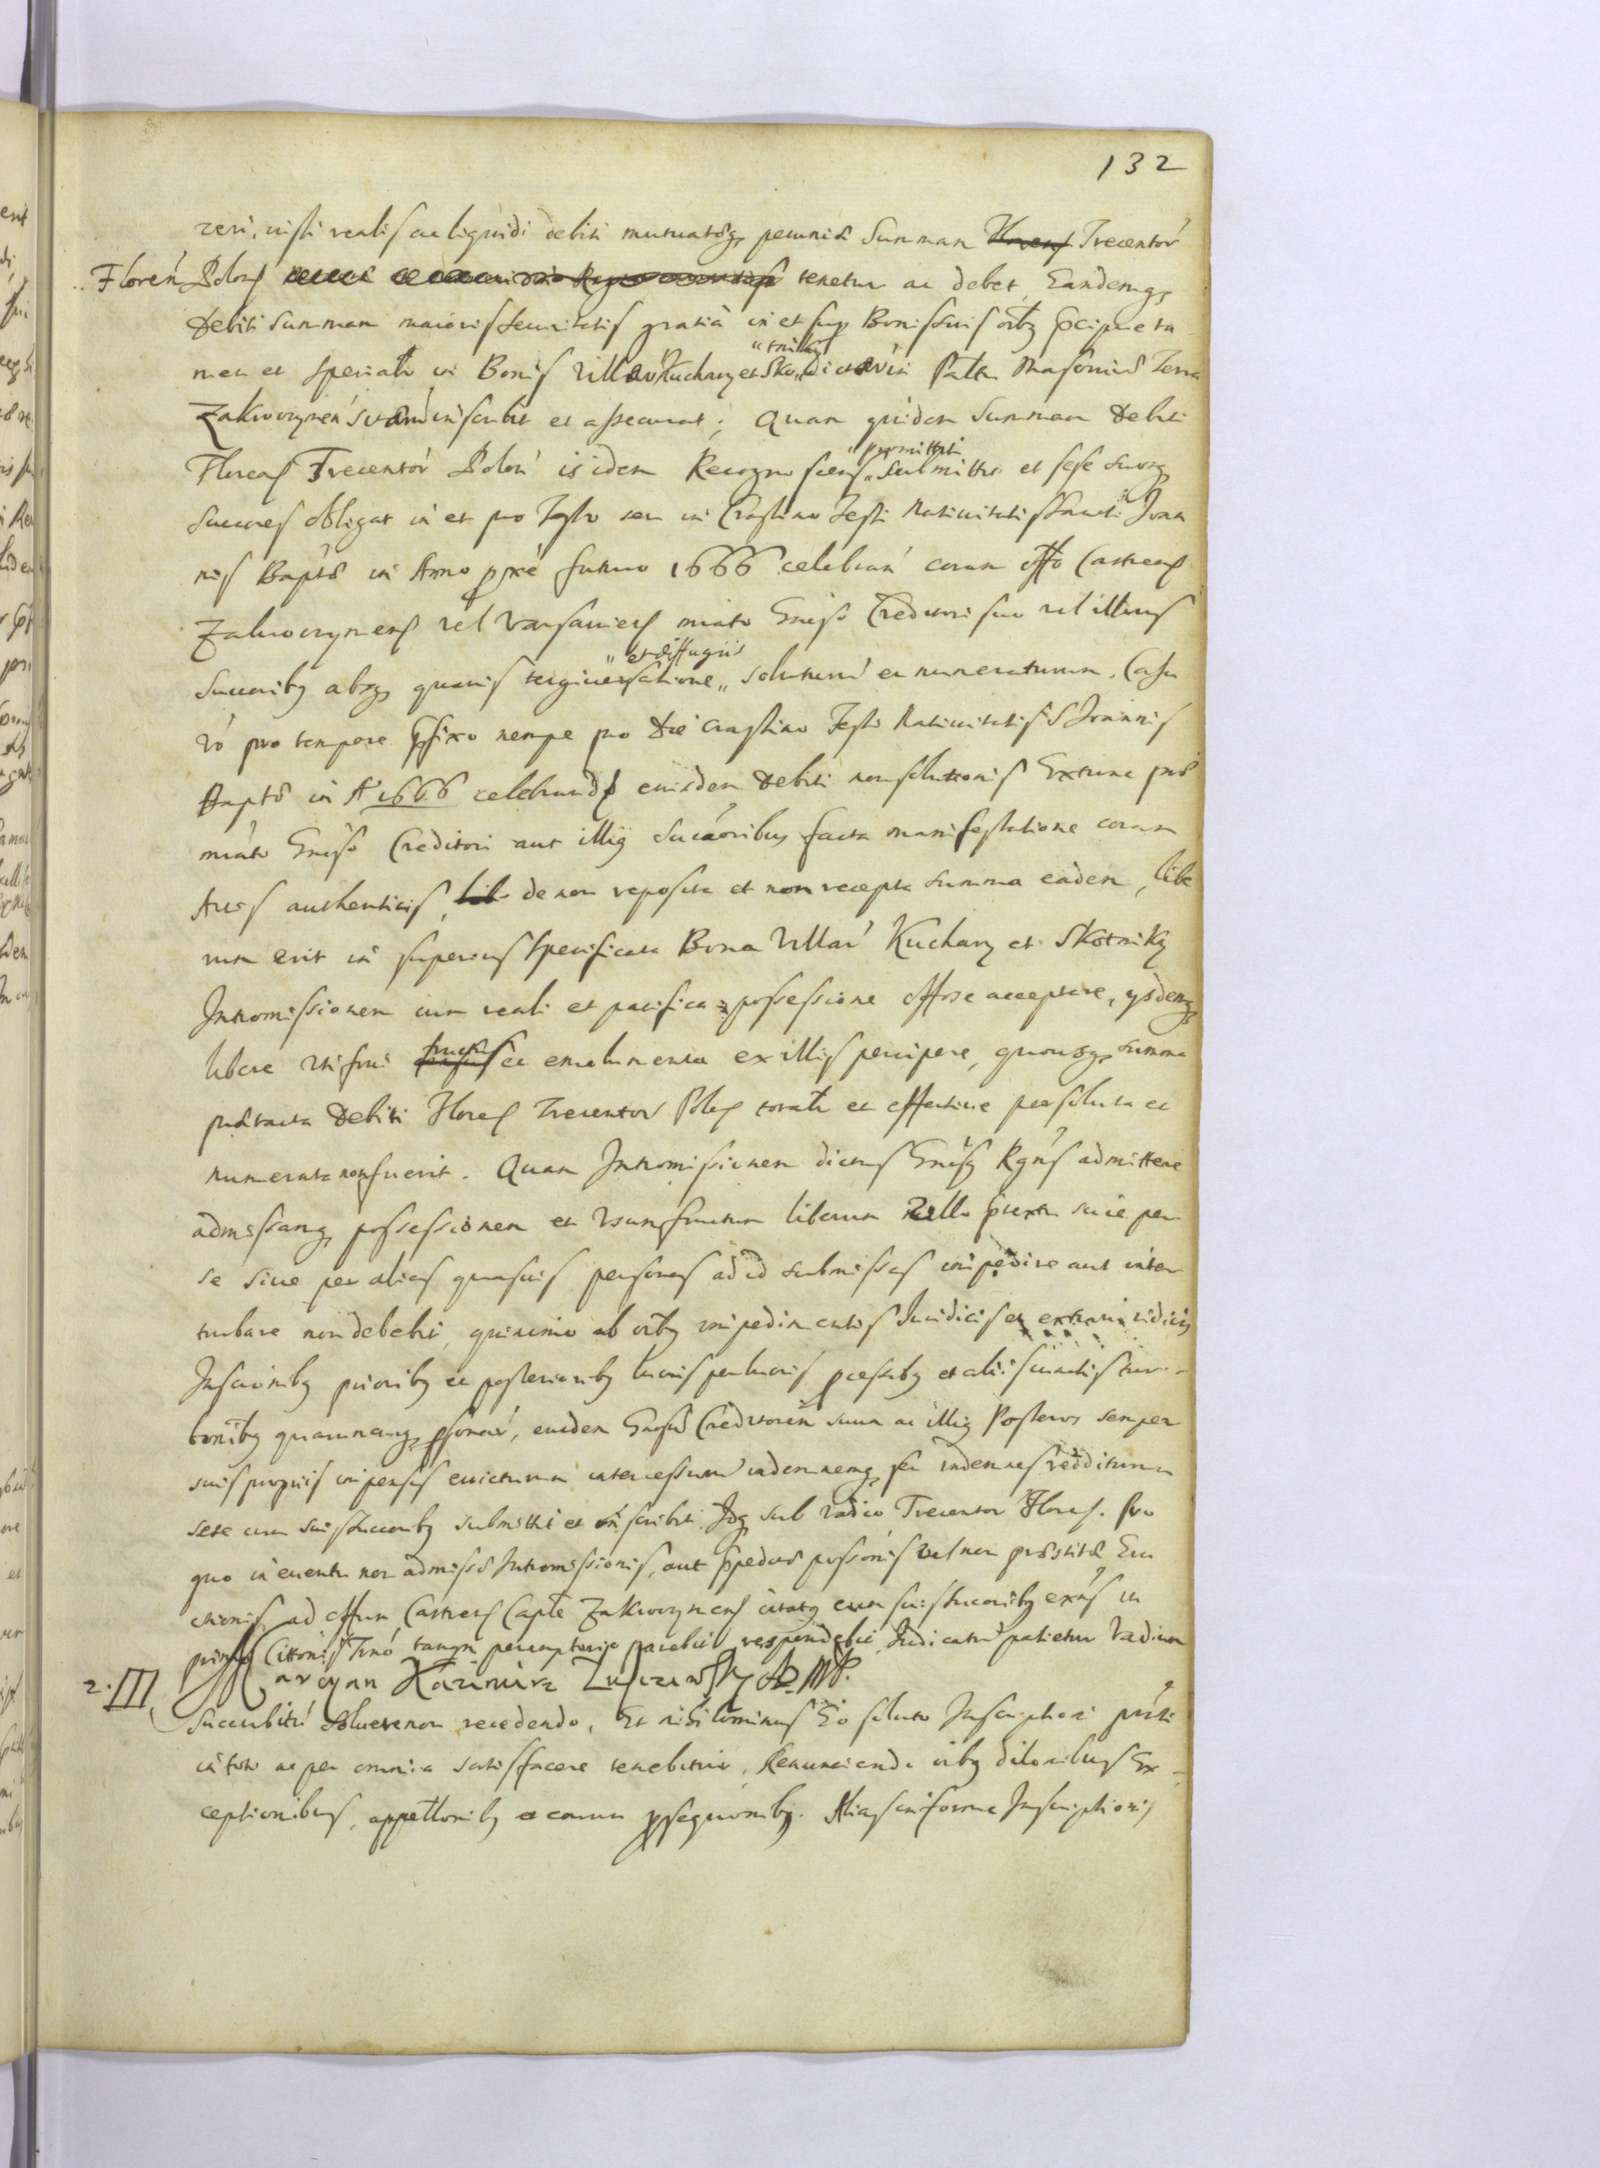 132
veri, iusti realis ac liquidi debiti mutuatæq pecuniæ Summam Trecentor
Floren Polon tenetur ac debet, Eandemq
Debiti Summam maioris securitatis gratiâ in et sup Bonis suis oibus præcipue ta
men et specialr in Bonis Villar Kuchary et Sko„ „tniki Pattu Masoviæ Terra
Zakroczymen inscribit et assecurat; Quam quidem Summam Debiti
Florens Trecentor Polon is idem Recognoscens „ submittit „permittit et sese suosq
Succres obligat in et pro Festo seu in Crastino Festi Natiuitatis Sancti Joan
nis Baptæ in Anno pxe futuro 1666 celebran coram Offo Castrens
Zakroczymens vel Varsauiens nrato Gnoso Creditori suo vel illius
Succoribus absq quauis tergiuersatione „ „et diffugiis soluturum et numeraturum. Casu
vo pro tempore præfixo nempe pro Die Crastino Festi Natiuitatis S Joannis
Baptæ in A 1666 celebrand eiusdem Debiti non solutionis Extunc præ
nrato Gnoso Creditori aut illius Succoribus facta manifestatione coram
Actis authenticis, de non reposita et non recepta summa eadem, libe
rum erit in superius specificata Bona Villar Kuchary et Skotniky
Intromissionem cum reali et pacifica possessione Offose acceptare, ijsdemq
libere uti frui fructus ac emolumenta ex illis percipere, quousq summa
prætacta Debiti Florens Trecentor Polons totalr et effectiue persoluta et
numerata non fuerit. Quam Intromissionem dictus Gnosus Rgns admittere
admissamq possessionem et Vsumfructum liberum nullo prætextu siue per
se siue per alias quasuis personas ad id submissas impedire aut inter
turbare non debebit, quinimo ab oibus impedimentis Juridicis et extraiuridicis
Inscrionibus prioribus et posterioribus processibus et aliis cunctis tur-
bonibus quarumcunq psonar, eundem Gnosum Creditorem suum ac illius Posteros semper
suis proprijs impensis euicturum intercessurum indemnemq seu indemnes redditurum
sese cum suis Succoribus submittit et inscribit. Idq sub Vadio Trecentor Florens. Pro
quo in euentu non admissæ Intromissionis, aut præpeditæ possonis vel non præstitæ Eui
ctionis, ad Offum Castrens Captle Zakroczymens citatus cum suis Succoribus exns in
primo Cittonis Trmo tanqm peremptorie parebit respondebit Iudicatum patietur Vadium
2. III, Marcyan Kazimierz
Succubitum soluere non recedendo, Et nihilominus Eo soluto Inscriptioni pnti
in toto ac per omnia satisfacere tenebitur, Renunciando oibus dilonibus Ex-
ceptionibus, appellonibus et earum psequonibus. Alias in forma Inscriptionis